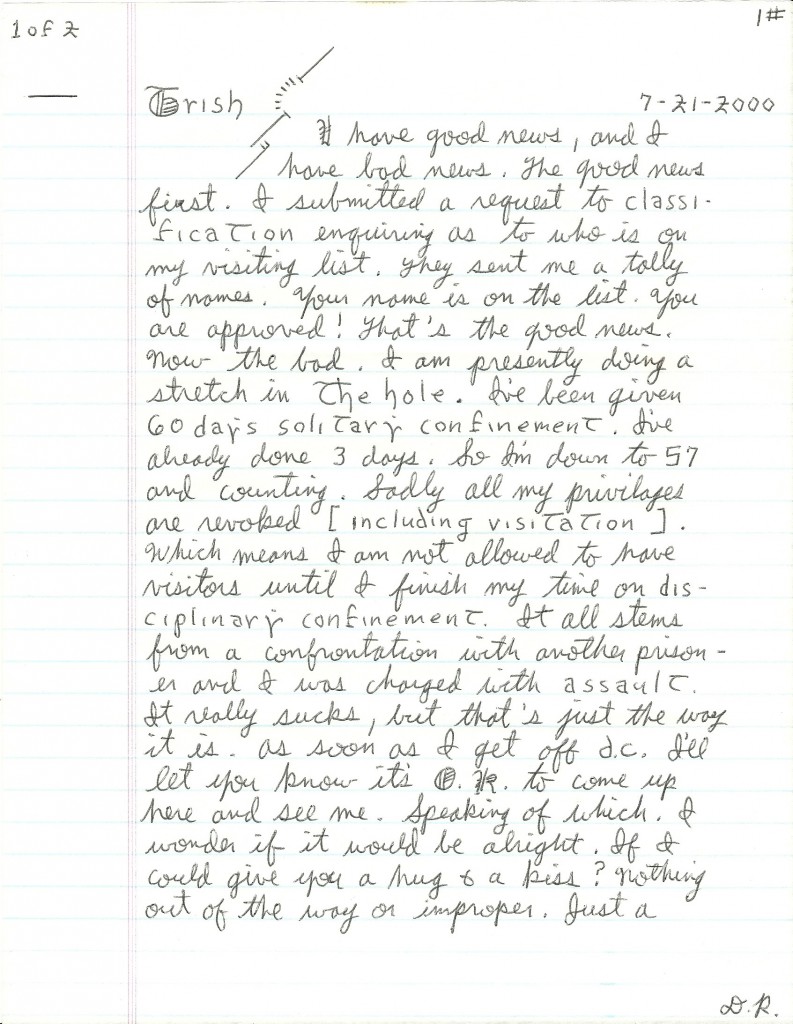 1 of 2
1#
Trish
7-21-2000
I have good news, and I
have bad news. The good news
first. I submitted a request to classi-
fication enquiring as to who is on
my visiting list. They sent me a tally
of names. Your name is on the list. You
are approved! That's the good news.
Now the bad. I am presently doing a
stretch in The hole. I've been given
60 days solitary confinement. I've
already done 3 days. So I'm down to 57
and counting. Sadly all my privilages
are revoked [including visitation].
Which means I am not allowed to have
visitors until I finish my time on dis-
ciplinary confinement. It all stems
from a confrontation with another prison-
er and I was charged with assault.
It really sucks, but that's just the way
it is. As soon as I get off d.c. I'll
let you know it's O.K. to come up
here and see me. Speaking of which. I
wonder if it would be alright. If I
could give you a hug & a kiss? Nothing
out of the way or improper. Just a
D.R.